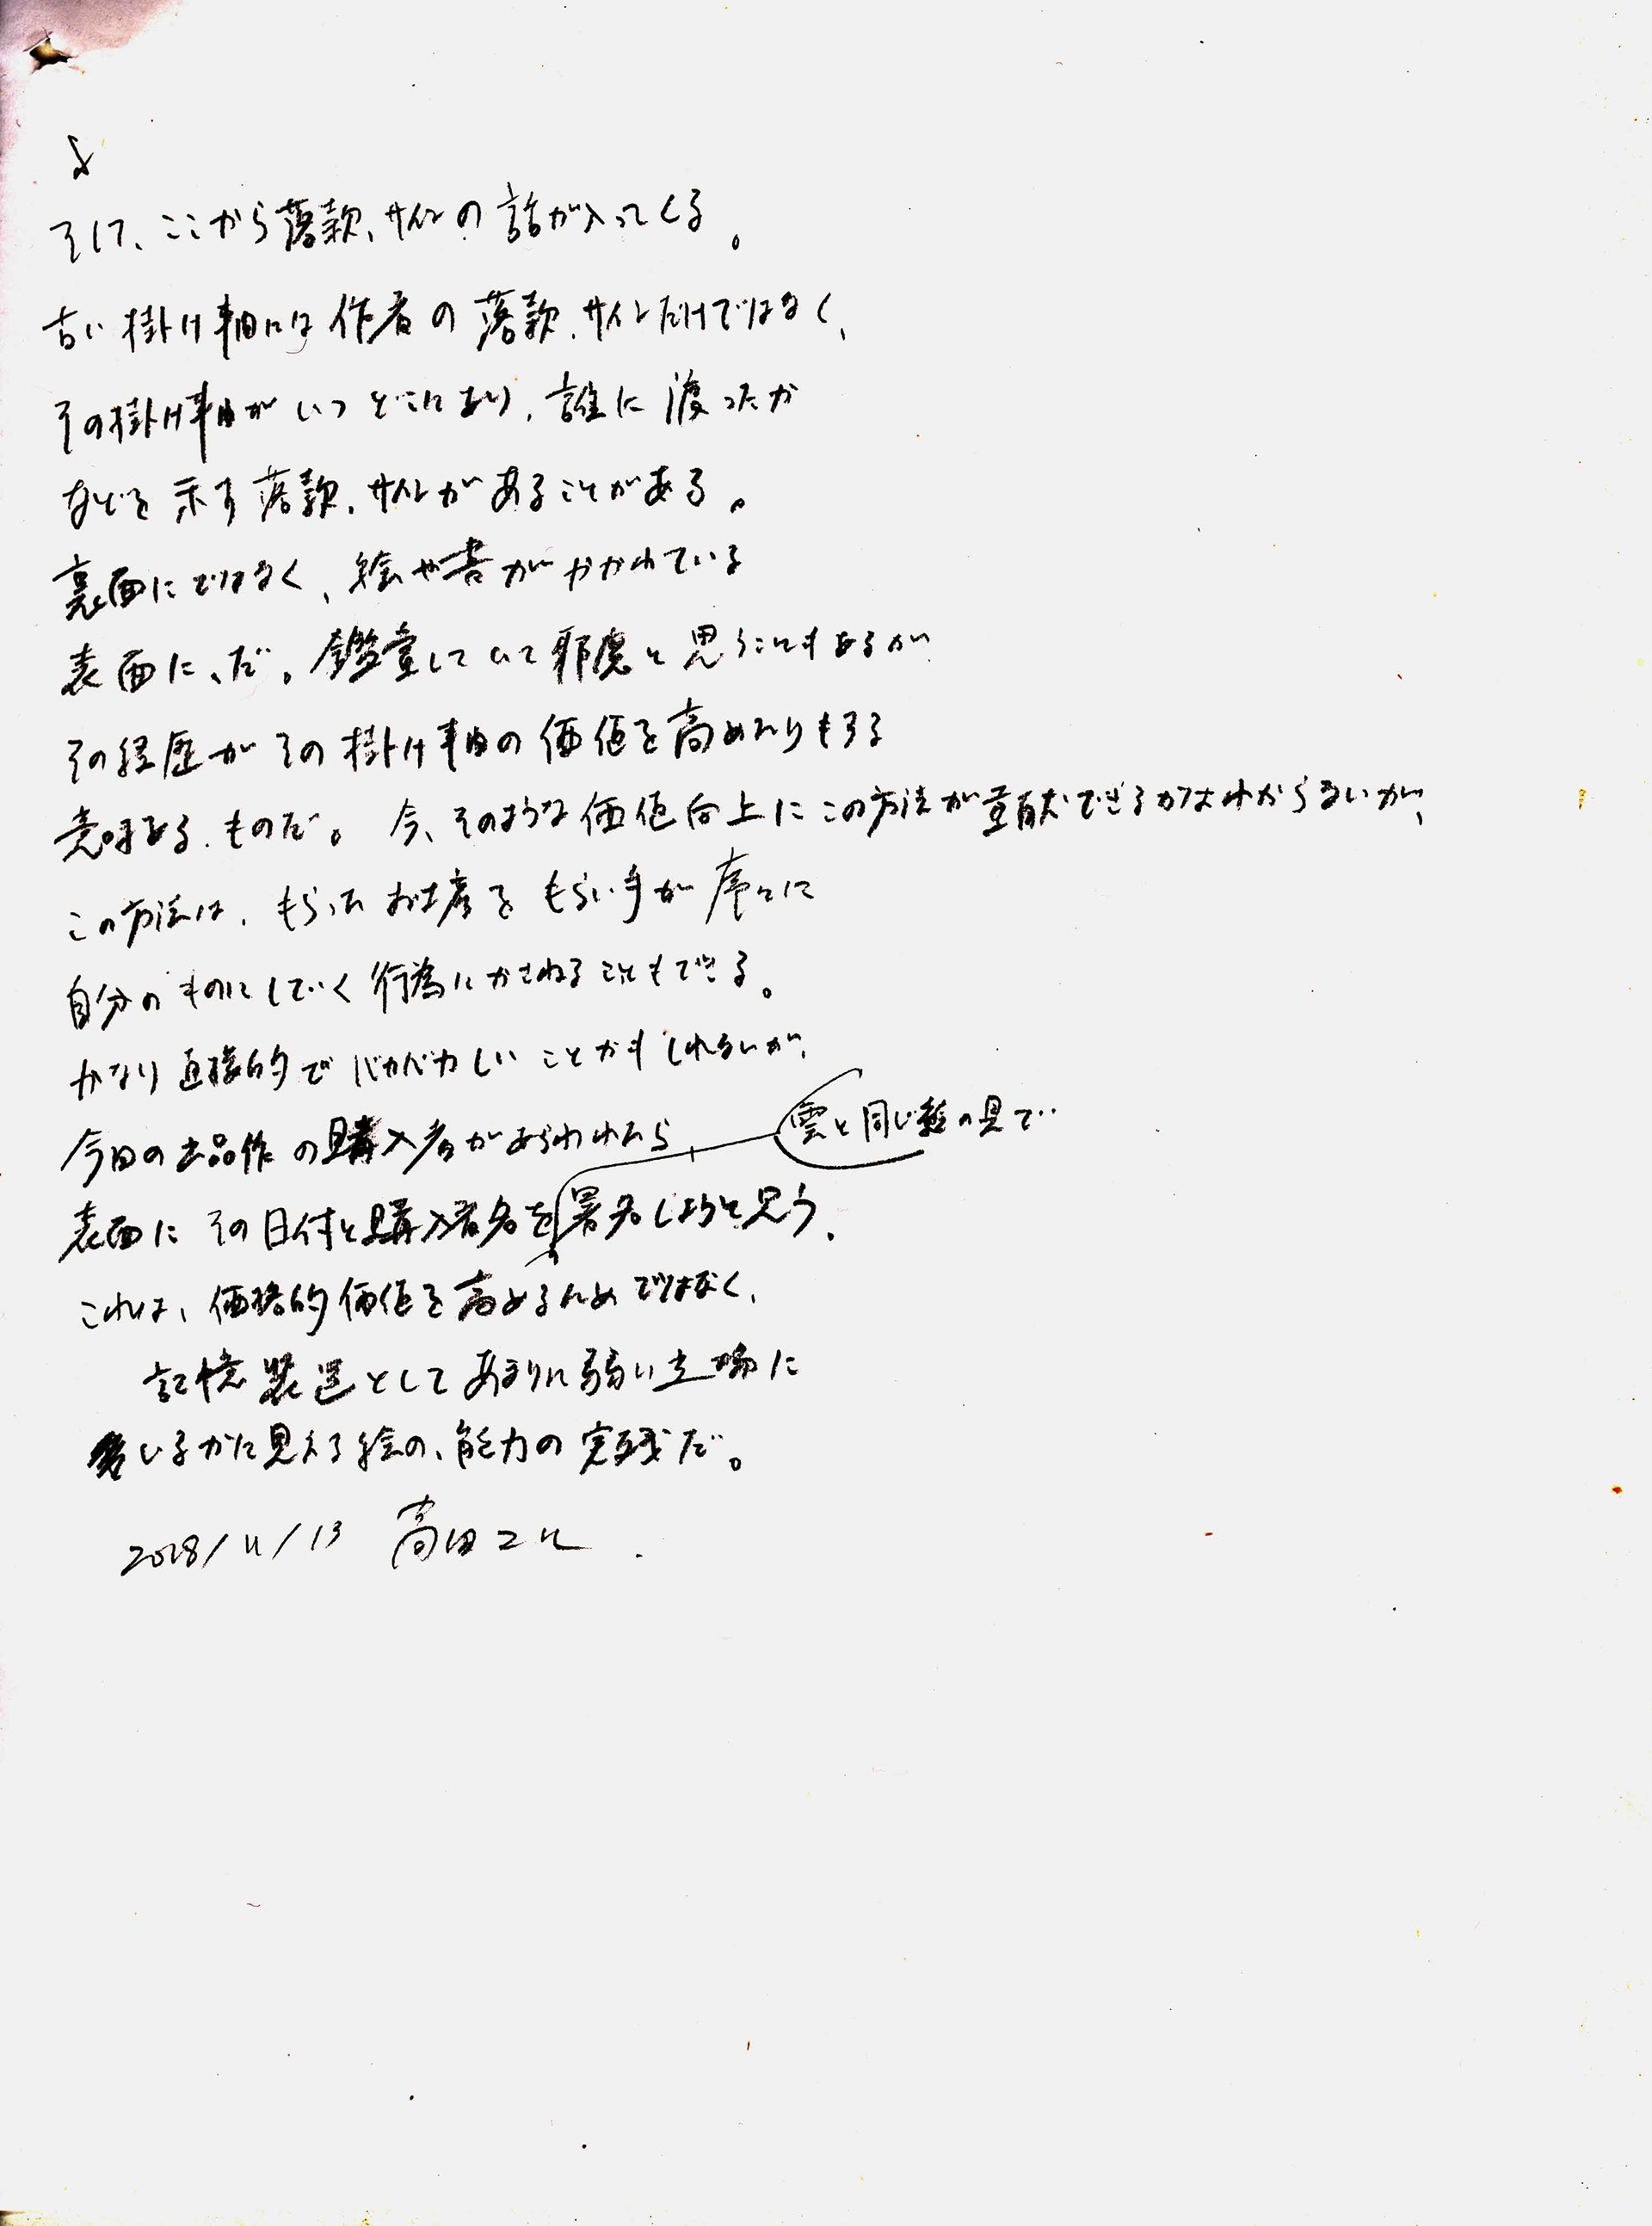 そして、ここから落款、サインの話が入ってくる。
古い掛け軸には作者の落款、サインだけではなく、
その掛け軸がいつどこにあり、誰に渡ったか
などを示す落款、サインがあることがある。
裏面にではなく、絵や書がかかれている
表面に、だ。鑑賞していて邪魔と思うこともあるが
その経歴がその掛け軸の価値を高めたりもする
意味ある、ものだ。今、そのような価値向上にこの方法が貢献できるかはわからないが、
この方法は、もらったお土産をもらい手が序々に
自分のものにしていく行為にかさねることもできる。
かなり直接的でバカバカしいことかもしれないが、
今回の出品作の購入者があらわれたら
雲と同じ絵の具で‥
表面にその日付と購入者名を署名しようと思う。
これは、価格的価値を高めるためではなく、
記憶装置としてあまりに弱い立場に
いるかに見える絵の、能力の実践だ。
2018/11/13 高田マル